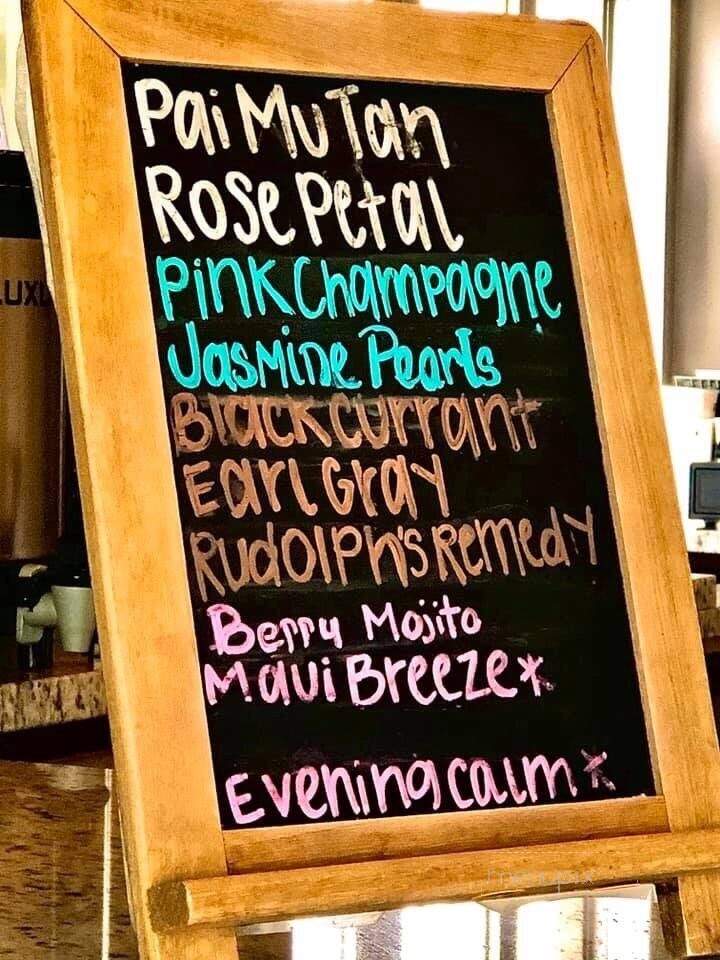 Pai Mu Tan
Rose Petal
Pink Champagne
Jasmine Pearls
Black Currant
Earl Gray
Rudolph's Remedy
Berry Mojito
Maui Breeze*
Evening calm*